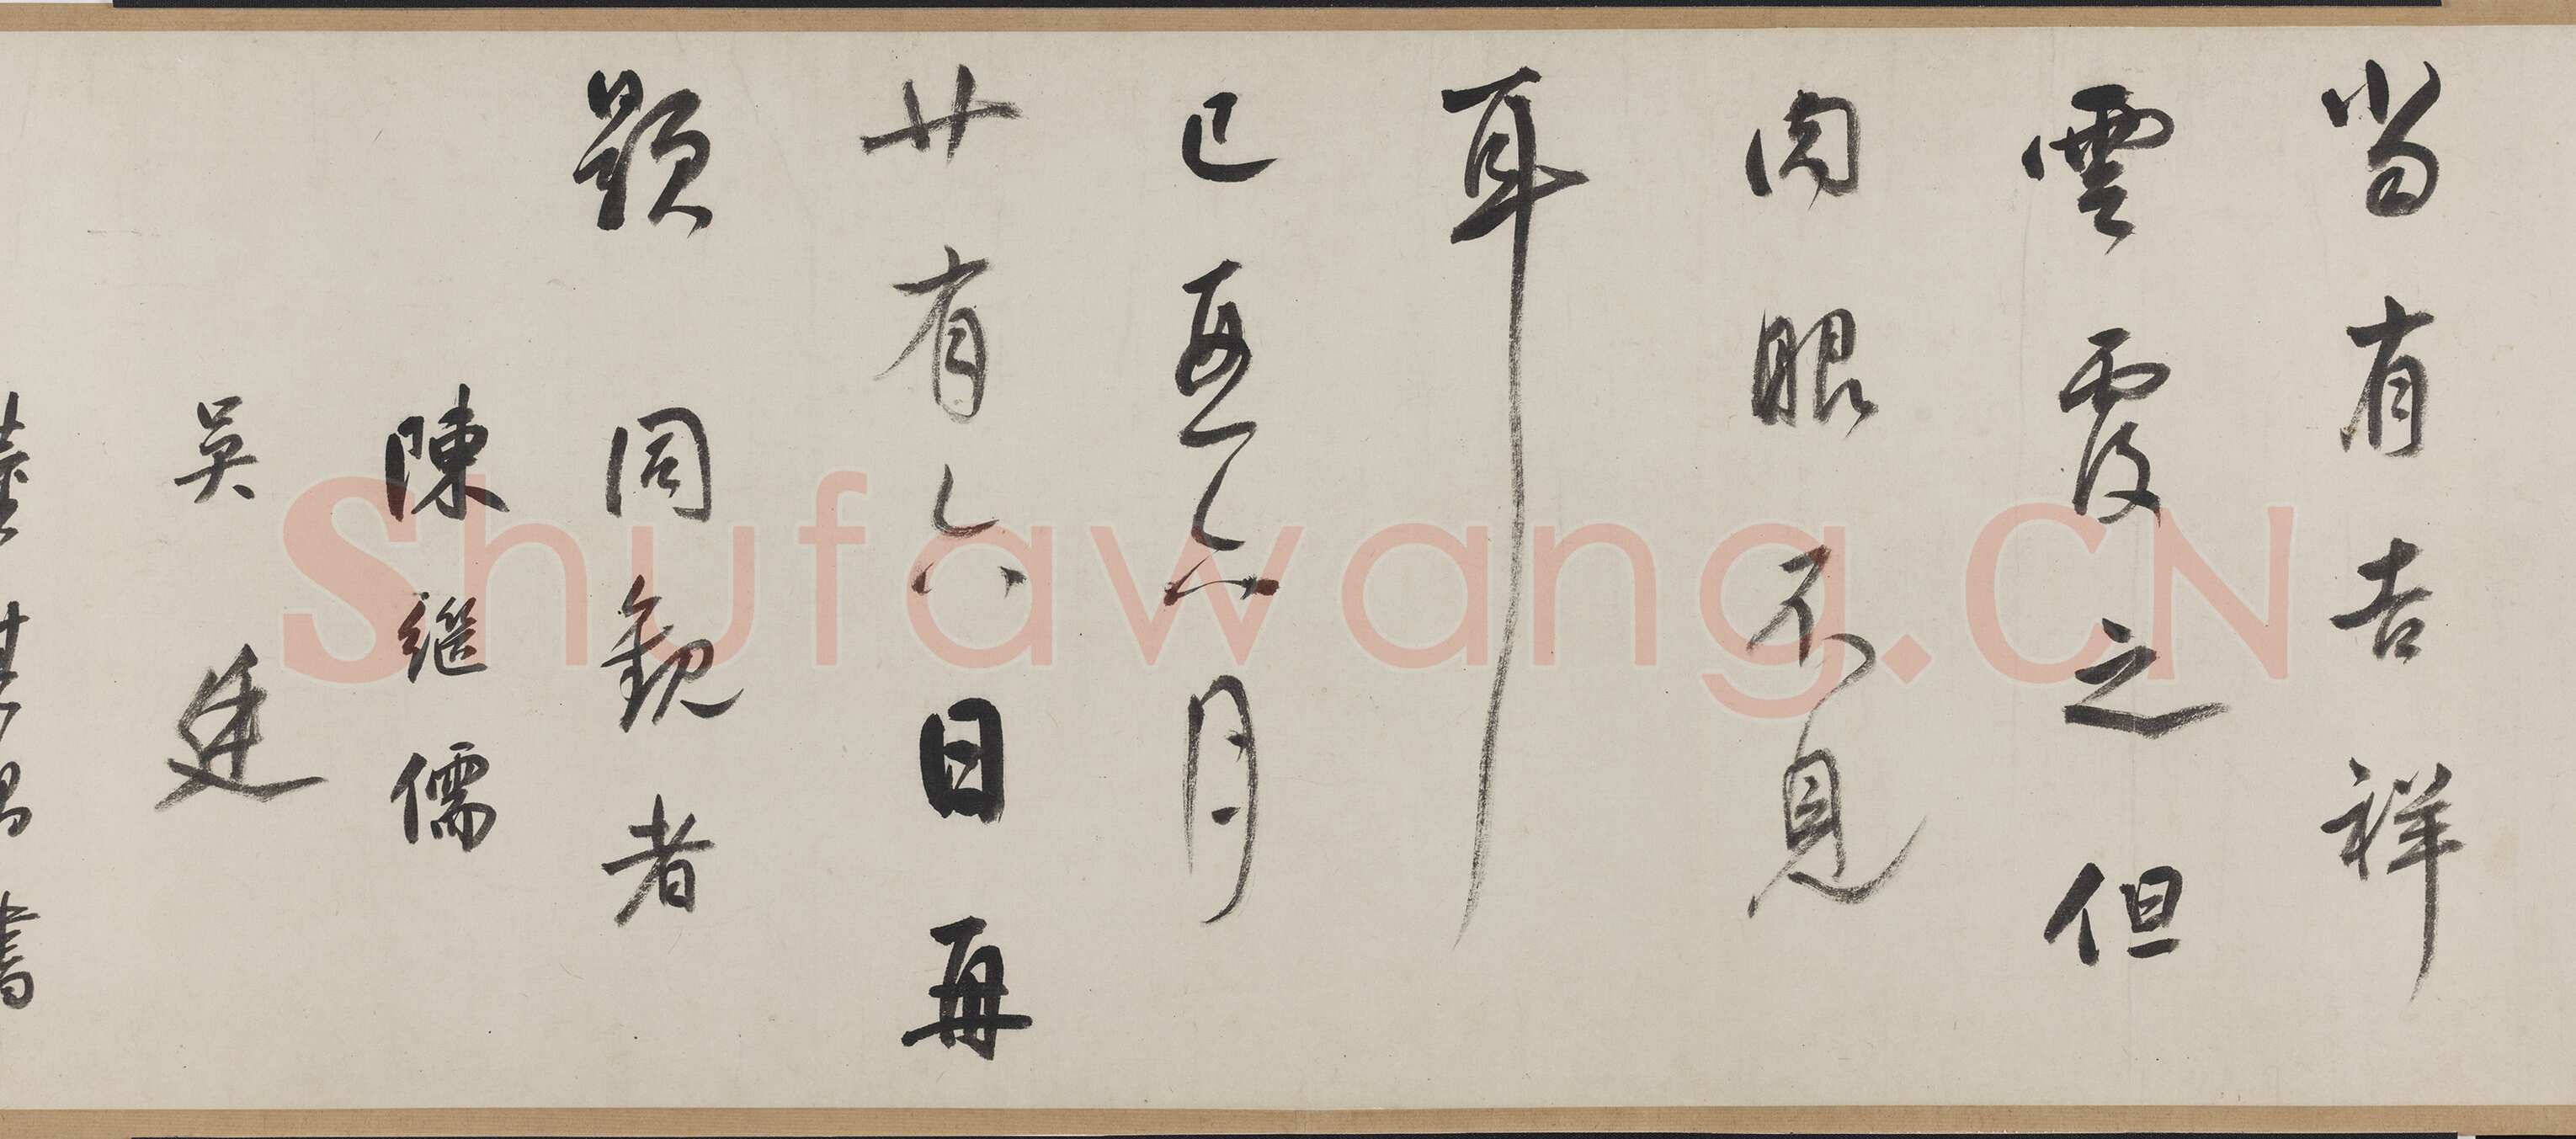 當有吉祥
雲覆之但
肉眼不見
耳
己酉六月
廿有六日再
題 同觀者
陳繼儒
吳廷
董其昌書
Shufawang.CN